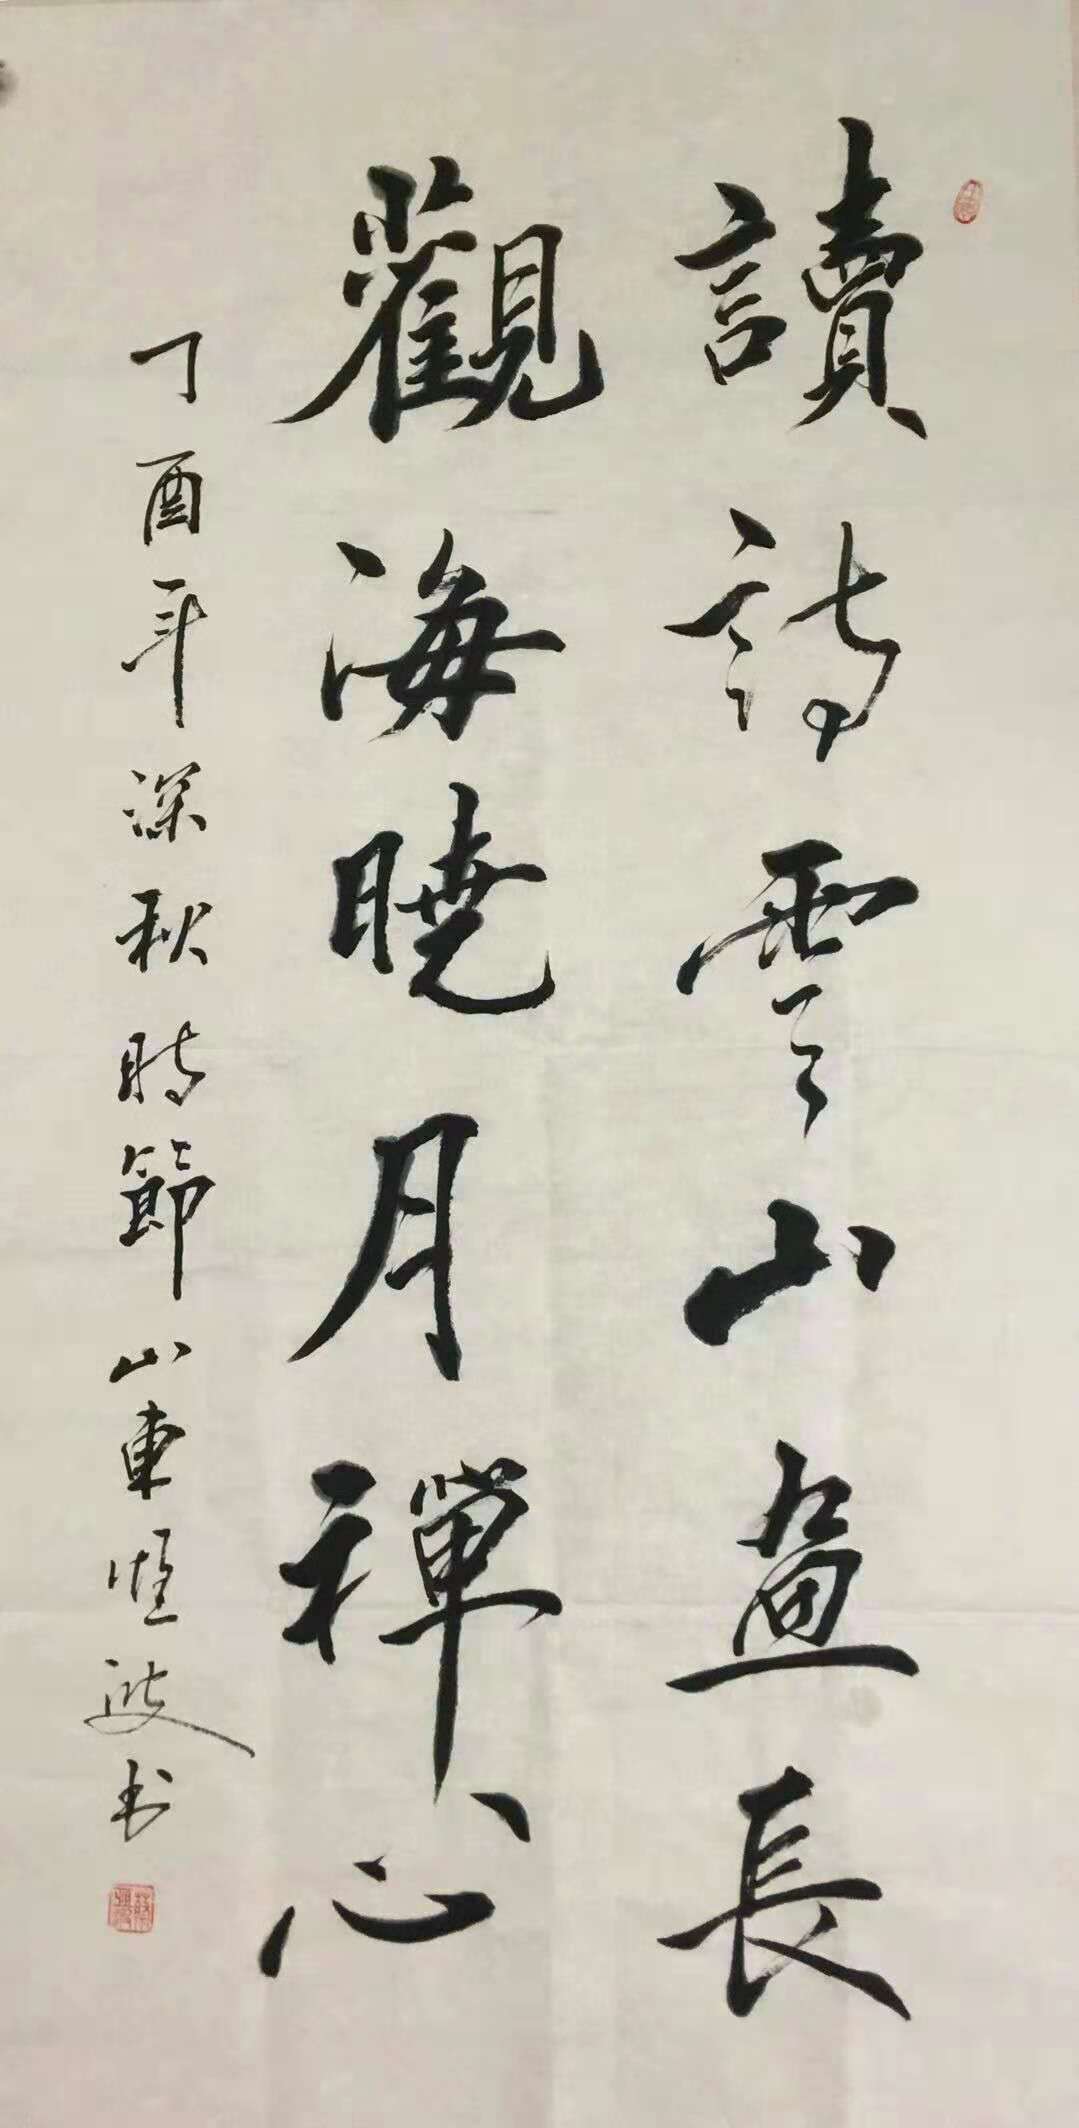 讀詩雲山畫長
觀海曉月禪心
丁酉年深秋時節山東书